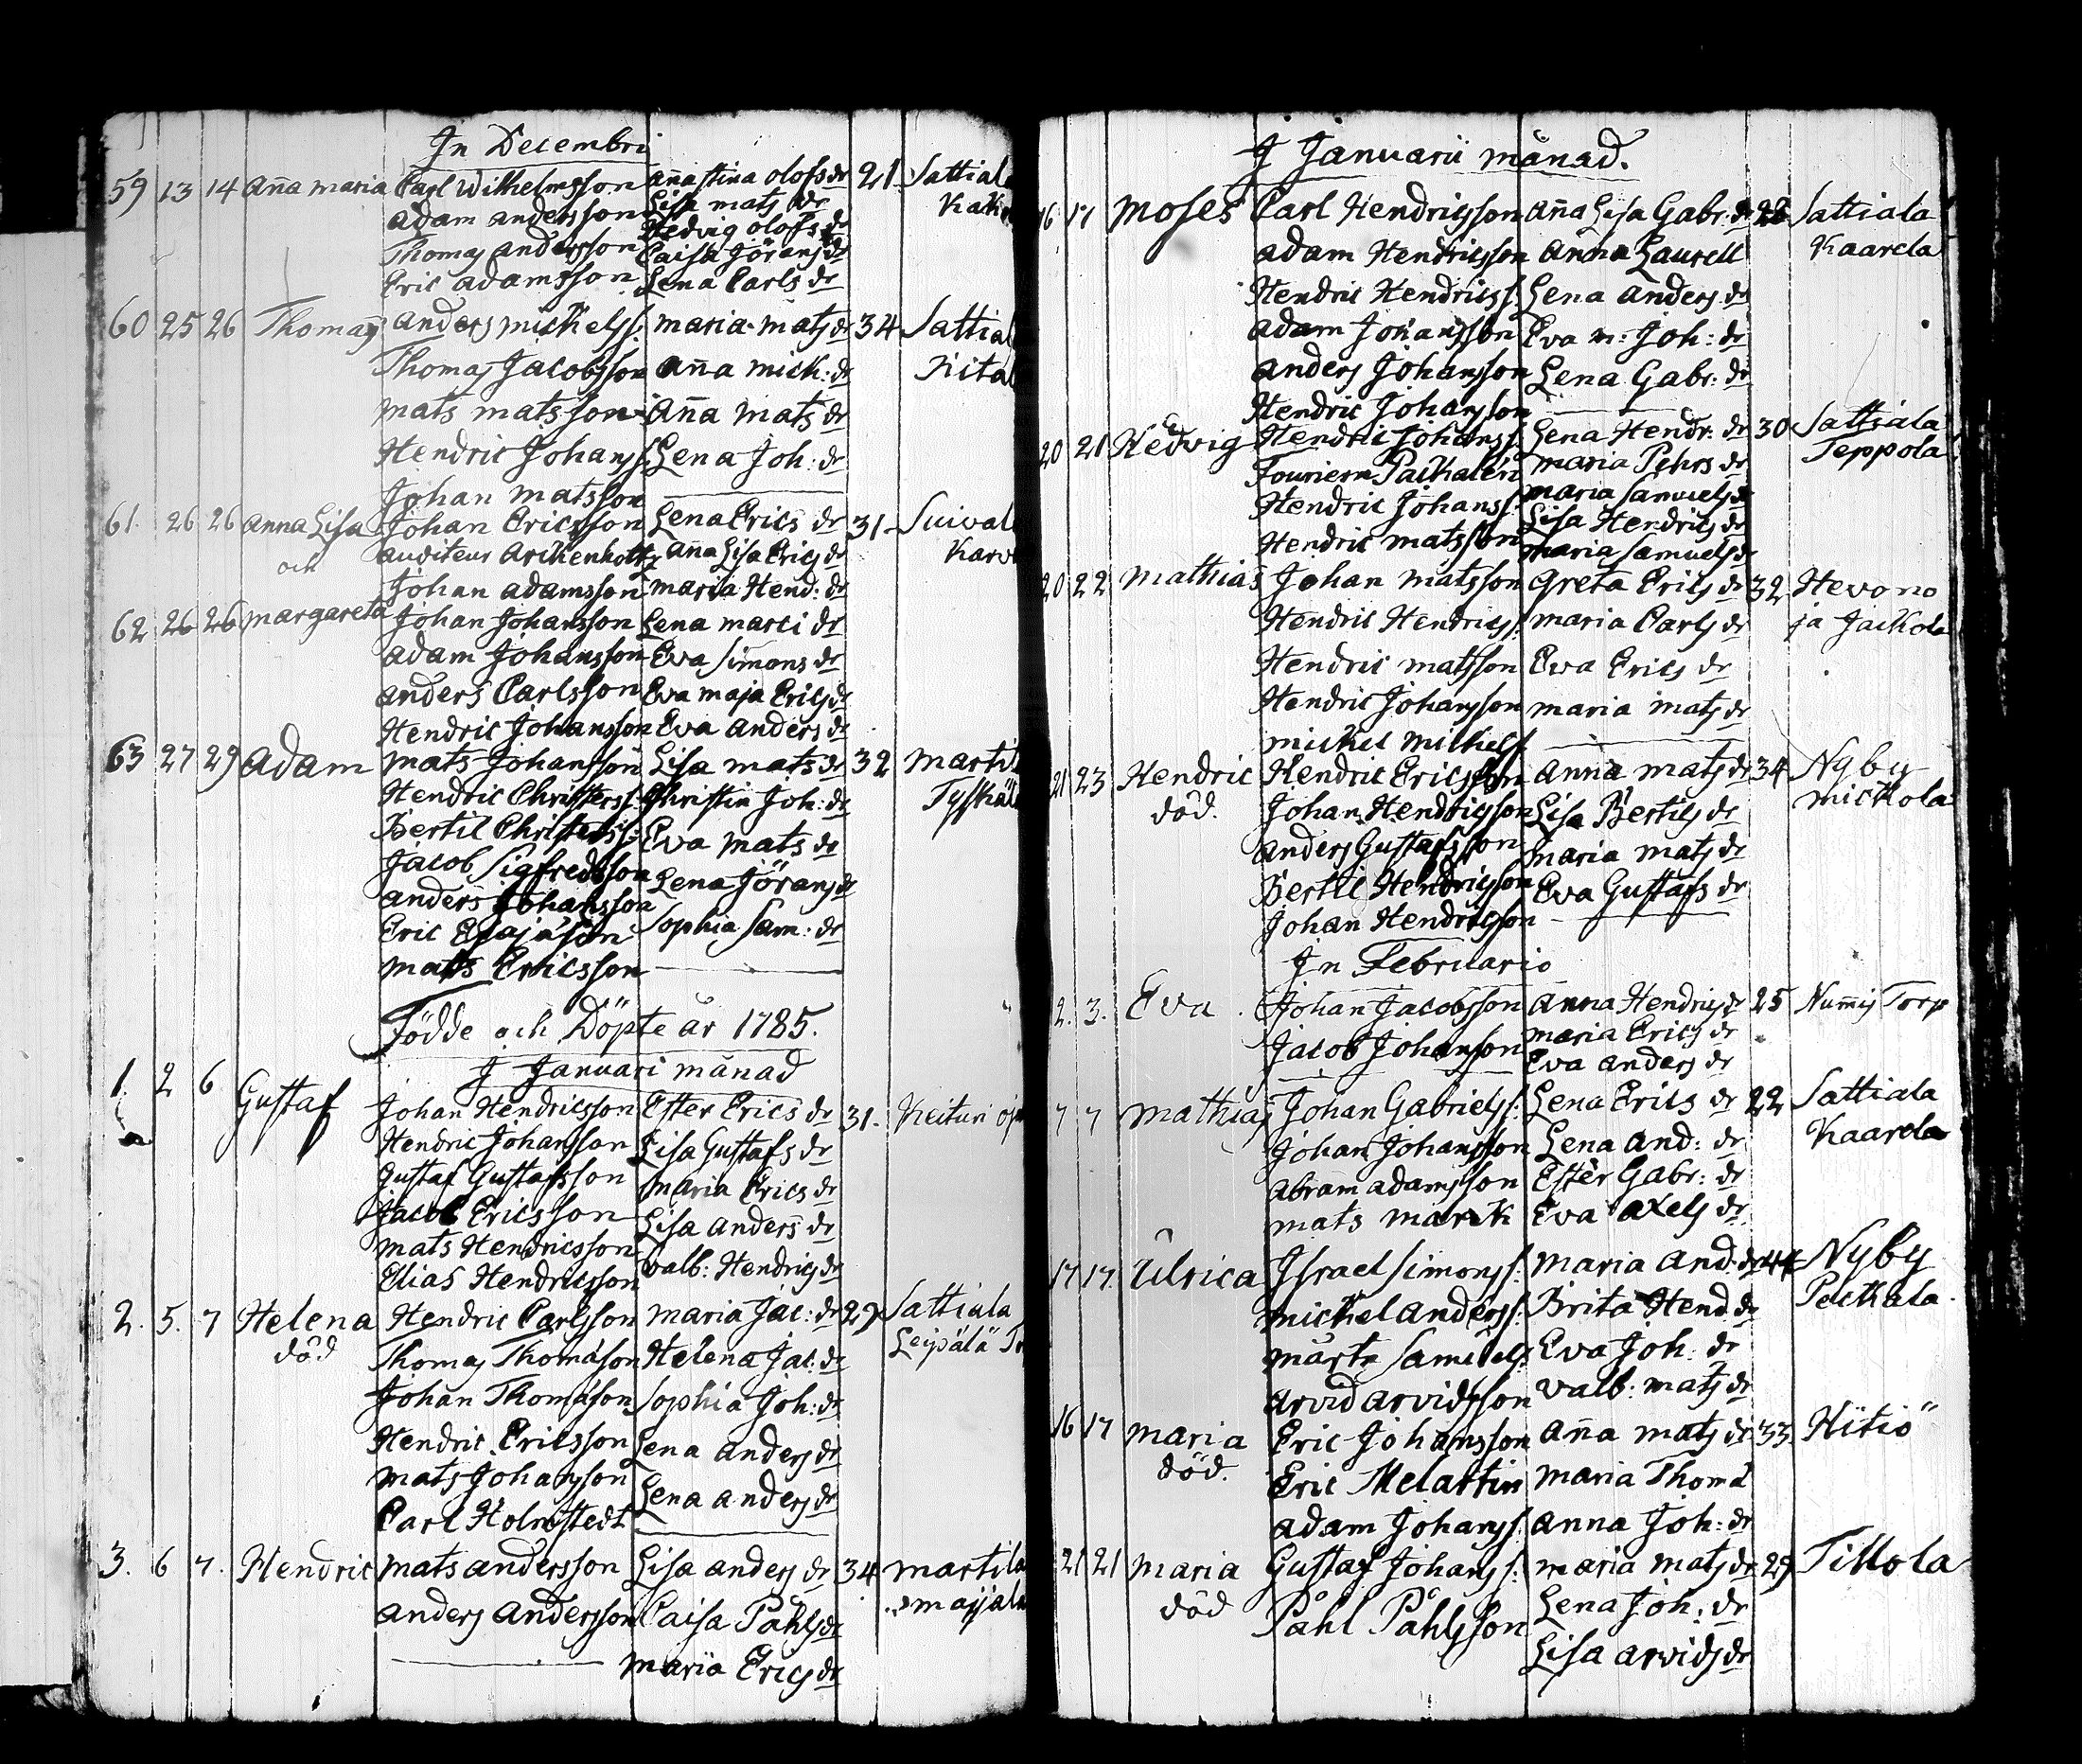 In Decembri
59 13 14 Aña maria Carl Wilhelmsson Aña Stina olofs dr 21 Sattiala
Adam andersson Lisa mats dr Kak
Thomas andersson Hedvig olofs dr
Eric adamsson Caisa Jörans dr
Lena Carls dr
60 25 26 Thomas anders michels s: maria mats dr 34 Sattial
Thomas Jacobsson aña mich: dr Kital
mats matsson aña mats dr
Hendric Johans s: Lena Joh: dr
Johan matsson
61. 26 26 anna Lisa Johan Ericsson Lena Erics dr 31 Suival
och auditeur Arckenholtz aña Lisa Erics dr Karv
Johan adamsson maria Hend: dr
62 26 26 margareta Johan Johansson Lena marci dr
adam Johansson Eva Simons dr
anders Carlsson Eva maja Erics dr
Hendric Johansson Eva anders dr
63 27 29 Adam mats Johansson Lisa mats dr 32 Martil
Hendric Christers s: Christin Joh: dr Tyskäl
Bertil Christers s: Eva mats dr
Jacob Sigfredsson Lena Jörans dr
anders Johansson Sophia Sam: dr
Eric Esajason
mats Ericsson
Födde och Döpte år 1785.
I Januari månad
1. 2 6 Gustaf Johan Hendricsson Ester Erics dr 31. Keituri
Hendric Johansson Lisa Gustafs dr
Gustaf Gustafsson maria Erics dr
Jacob Ericsson Lisa anders dr
mats Hendricsson Valb: Hendrics dr
Elias Hendricsson
2. 5. 7 Helena Hendric Carlsson maria Jac: dr 29 Sattiala
död Thomas Thomasson Helena Jac: dr Leipälä
Johan Thomasson Sophia Joh: dr
Hendric Ericsson Lena anders dr
mats Johansson Lena anders dr
Carl Holmstedt
3. 6 7. Hendric mats andersson Lisa anders dr 34 martila
anders andersson Caisa Påhls dr majjala
maria Erics dr
I Januarii månad.
16 17 Moses Carl Hendricsson aña Lisa Gabr: dr 28 Sattiala
adam Hendricsson anna Laurell Kaarela
Hendric Hendrics s: Lena anders dr
adam Johansson Eva m: Joh: dr
anders Johansson Lena Gabr: dr
Hendric Johansson
20 21 Hedvig Hendric Johans s: Lena Hendr: dr 30 Sattiala
Fouriern Paikalén maria Pehrs dr Teppola
Hendric Johans s: maria Samuels dr
Hendric matsson Lisa Hendrics dr
maria Samuels dr
20 22 mathias Johan matsson Greta Erics dr 32 Hevono
Hendric Hendrics s: maria Carls dr ja Jackola
Hendric matsson Eva Erics dr
Hendric Johansson maria mats dr
michel michels s:
21 23 Hendric Hendric Ericsson anna mats dr 34 Nyby
död. Johan Hendricsson Lisa Bertils dr mickola
anders Gustafsson maria mats dr
Bertil Hendricsson Eva Gustafs dr
Johan Hendricsson
In Februario
2. 3. Eva Johan Jacobsson anna Hendrics dr 25 Numis Torp
Jacob Johansson maria Erics dr
Eva anders dr
7 7 mathias Johan Gabriels s: Lena Erics dr 22 Sattiala
Johan Johansson Lena and: dr Kaarela
abram adamsson Ester Gabr: dr
mats marck Eva axels dr
17 17. Ulrica Israel Simons s: maria and: dr 44 Nyby
michel anders s: Brita Hend: dr Peckala
märta Samuels Eva Joh: dr
arvid arvidsson valb: mats dr
16 17 maria Eric Johansson aña mats dr 33 Hitiö
död. Eric Melartin maria Thoma
adam Johans s: anna Joh: dr
21 21 maria Gustaf Johans s: maria mats dr 29 Tillola
död Påhl Påhlsson Lena Joh: dr
Lisa arvids dr